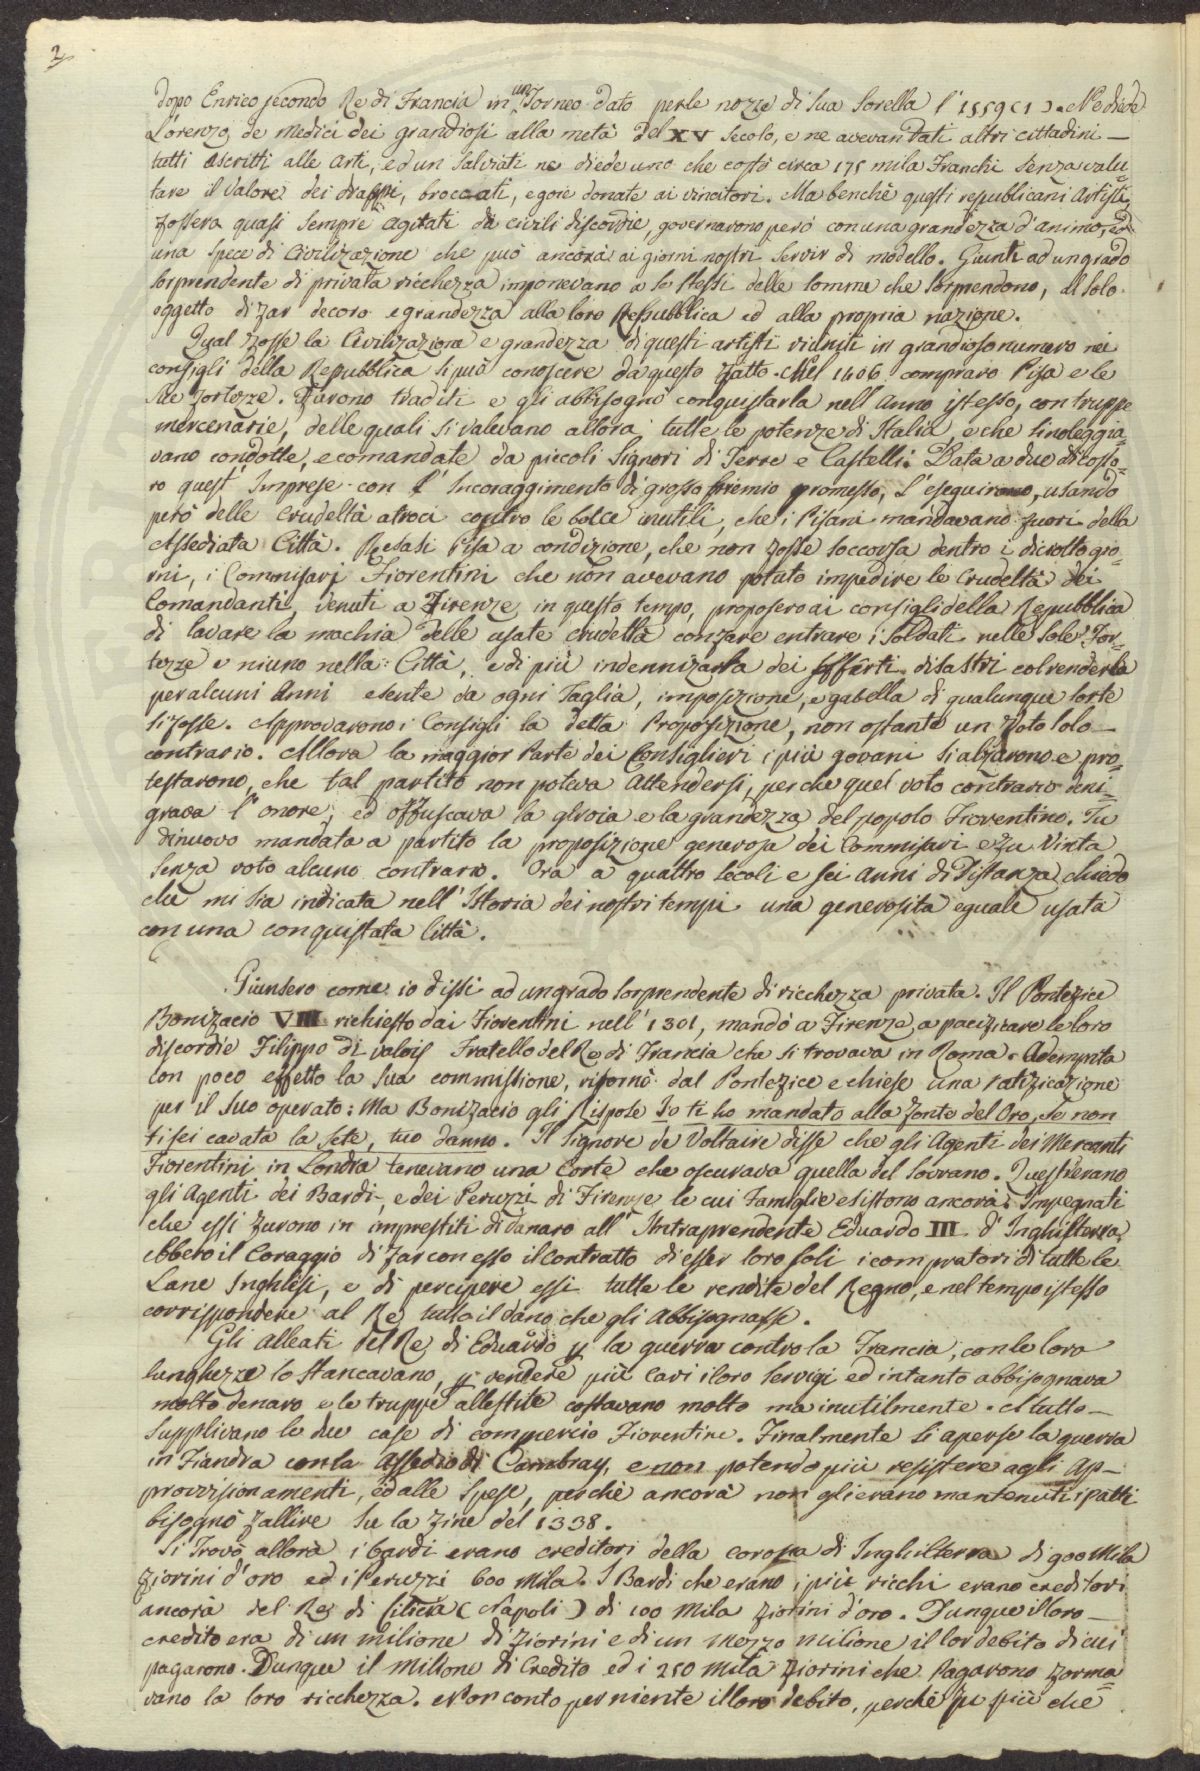 2
dopo Enrico secondo Re di Francia in un Torneo dato per le nozze di sua Sorella l'1559 (1). Ne diede
Lorenzo de Medici dei grandiosi alla metà del XV Secolo, e ne avevan dati altri cittadini —
tutti ascritti alle Arti, ed un Salviati ne diede uno che costò circa 175 mila Franchi senza valu=
tare il valore dei drappi, broccati, e goie donate ai vincitori. Ma benchè questi republicani Artisti,
fossera quasi sempre agitati da civili discordie, governavono però con una grandezza d'animo, ed
una spece di Civilizazione che può ancora ai giorni nostri servir di modello. Giunti ad un grado
sorprendente di privata ricchezza imponevano a se stessi delle somme che sorprendono, al solo
oggetto di far decoro e grandezza alla loro Republica ed alla propria nazione.
Qual fosse la Civilizazione e grandezza di questi artisti riuniti in grandioso numero nei
consigli della Repubblica si può conoscere da questo fatto. Nel 1406 compraro Pisa e le
sue fortezze. Furono traditi e gli abbisognò conquistarla nell'Anno istesso, con truppe
mercenarie, delle quali si valevano allora tutte le potenze di Italia e che si noleggia=
vano condotte, e comandate da piccoli Signori di Terre e Castelli. Data a due di costo=
ro quest'Imprese con l'Incoraggimento di grosso premio promesso, l'eseguirono, usando
però delle crudeltà atroci contro le bolce inutili, che i Pisani mandavano fuori della
Assediata Città. Resasi Pisa a condizione, che non fosse soccorsa dentro i diciotto gio=
rni, i Commisarj Fiorentini che non avevano potuto impedire le crudeltà dei
Comandanti, venuti a Firenze in questo tempo, proposero ai consigli della Repubblica
di lavare la machia delle usate crudeltà con fare entrare i soldati nelle sole For=
tezze e niuno nella Città, e di più indennizarla dei sofferti disastri col renderla
per alcuni Anni esente da ogni Taglia, imposizione, e gabella di qualunque sorte
si fosse. Approvarono i Consigli la detta Proposizione, non ostante un Voto solo —
contrario. Allora la maggior Parte dei Consiglieri i più govani si alzarono e pro=
testarono, che tal partito non poteva attendersi, perche quel voto contrario deni=
grava l'onore, ed offuscava la gloria e la grandezza del popolo Fiorentino. Fu
dinuovo mandata a partito la proposizione generosa dei Commisari e fu Vinta
senza voto alcuno contrario. Ora a quattro secoli e sei anni di Distanza chiedo
che mi sia indicata nell'Istoria dei nostri tempi una generosità eguale usata
con una conquistata Città.
Giunsero come io dissi ad un grado sorprendente di ricchezza privata. Il Pontefice
Bonifacio VIII richiesto dai Fiorentini nell'1301, mandò a Firenze a pacificare le loro
discordie Filippo di valois Fratello del Re di Francia che si trovava in Roma. Adempita
con poco effetto la sua commissione, ritornò dal Pontefice e chiese una ratificazione
per il suo operato: Ma Bonifacio gli Rispose Io ti ho mandato alla fonte del Oro, se non
ti sei cavata la sete, tuo danno. Il Signore de Voltaire disse che gli Agenti dei Mercanti
Fiorentini in Londra tenevano una Corte che oscurava quella del sovrano. Quest'erano
gli Agenti dei Bardi, e dei Peruzzi di Firenze le cui Famiglie esistono ancora. Impegnati
che essi furono in imprestiti di danaro all'Intraprendente Eduardo III d'Inghilterra,
ebbero il Coraggio di far con esso il contratto di esser loro soli i compratori di tutte le
Lane Inghlesi, e di percipere essi tutte le rendite del Regno, e nel tempo istesso
corrispondere al Re tutto il dano che gli abbisognasse.
Gli alleati del Re di Eduardo p la guerra contro la Francia, con le loro
lunghezze lo stancavano, p vendere più cari i loro servigi ed intanto abbisognava
molto denaro e le truppe allestite costavano molto ma inutilmente. A tutto —
supplivano le due case di commercio Fiorentine. Finalmente si aperse la guerra
in Fiandra con la Assedio di Cambray, e non potendo più resistere agli Ap—
provvisionamenti, ed alle spese, perchè ancora non gli erano mantenuti i patti
bisognò fallire su la fine del 1338.
Si trovò allora i bardi erano creditori della corona di Inghilterra di 900 Mila
fiorini d'oro ed i Peruzzi 600 mila. I Bardi che erano i più ricchi erano creditori
ancora del Re di Cilicia (Napoli) di 100 mila fiorini d'oro. Dunque il loro —
credito era di un milione di fiorini e di un mezzo milione il lor debito di cui
pagarono. Dunque il milione di Credito ed i 250 mila fiorini che Pagarono forma=
vano la loro ricchezza. Non conto per niente il loro debito, perchè fu più che